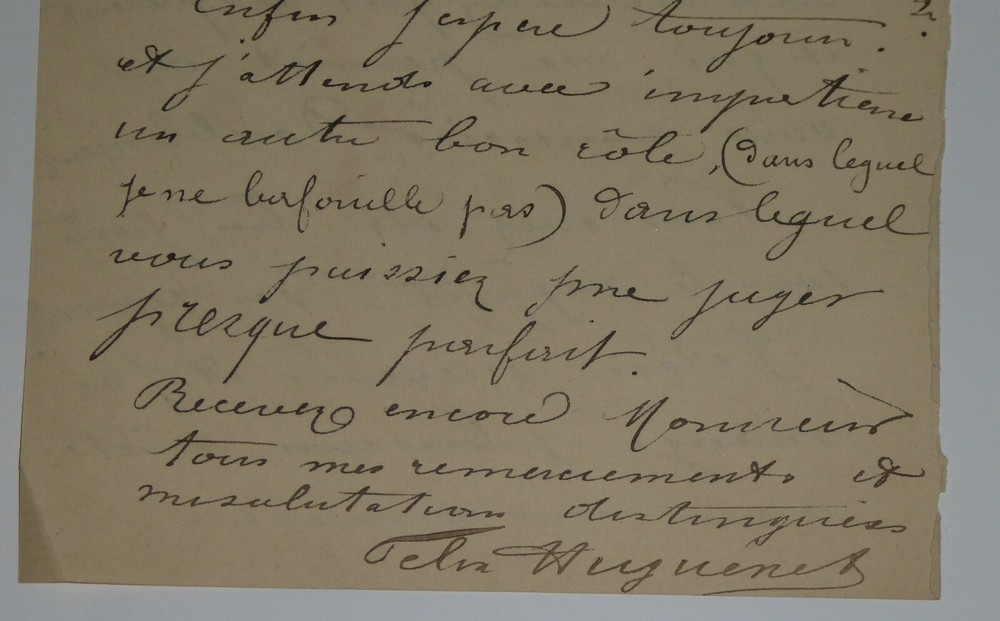 Enfin j'espere toujours.
et j'attends avec impatience
un autre bon rôle, (dans lequel
je ne bafouille pas) dans lequel
vous puissiez me juger
presque parfait.
Recevez encore Monsieur
tous mes remerciements et
mes salutations distinguées
Felix Huguenet